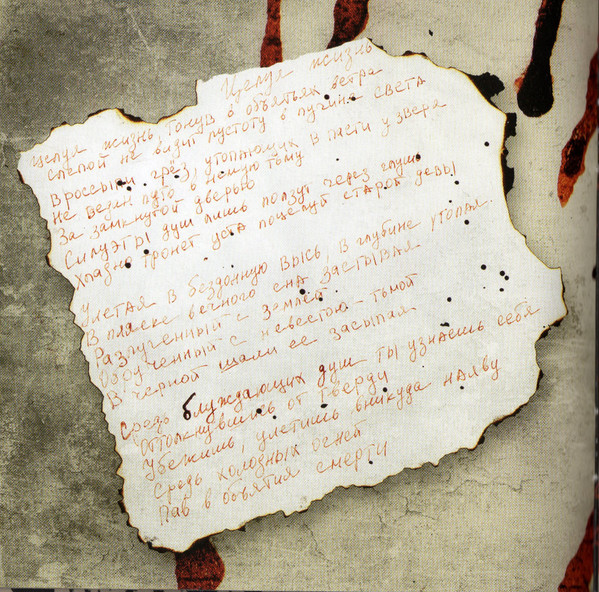 Целуя жизнь
Целуя жизнь тонув в объятьях ветра
Слепой не видит пустоту в пучине света
В россыпи грёз, утопающих в пасти у зверя
Не ведая путь в немую тьму
За замкнутой дверью
Силуэты душ лишь ползут через глушь
Хладно тронет уста поцелуй старой девы
Улетая в бездонную высь, в глубине утопая.
В пляске вечного сна застывая
Разлученный с землей
Обрученный с невестою - тьмой
В черной шали ее засыпая
Средь блуждающих душ ты узнаешь себя
Оттолкнувшись от тверди
Убежишь, улетишь вникуда наяву
Средь холодных огней
Пав в объятия смерти